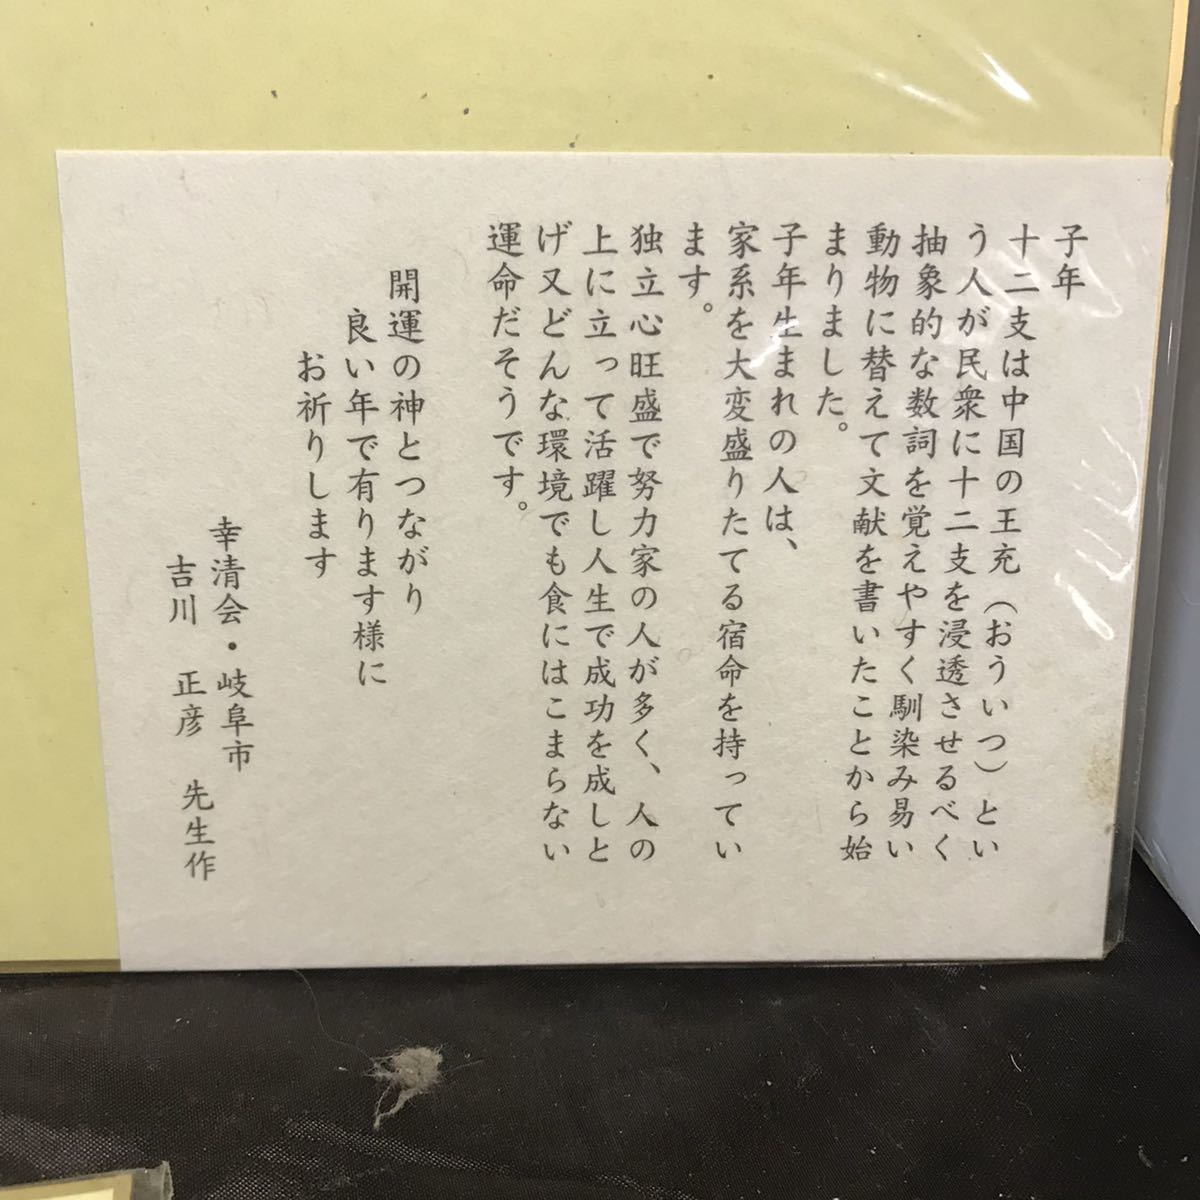 子年
十二支は中国の王充（おういつ）とい
う人が民衆に十二支を浸透させるべく
抽象的な数詞を覚えやすく馴染み易い
動物に替えて文献を書いたことから始
まりました。
子年生まれの人は、
家系を大変盛りたてる宿命を持ってい
ます。
独立心旺盛で努力家の人が多く、人の
上に立って活躍し人生で成功を成しと
げ又どんな環境でも食にはこまらない
運命だそうです。
開運の神とつながり
良い年で有ります様に
お祈りします
幸清会・岐阜市
吉川 正彦 先生作